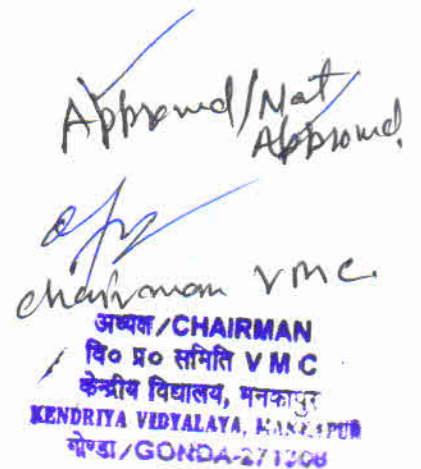 Approved/Not
Approved
Chairman VMC.
अध्यक्ष/CHAIRMAN
वि० प्र० समिति V M C
केन्द्रीय विद्यालय, मनकापुर
KENDRIYA VIDYALAYA, MANKAPUR
गोण्डा/GONDA-271308